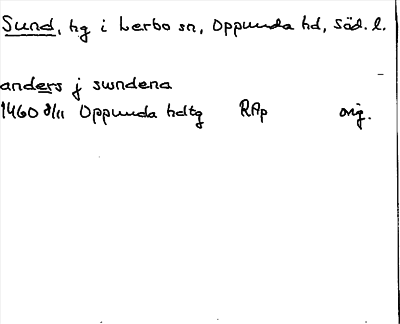 Sund, hg i Lerbo sn, Oppunda hd, Söd. l.
anders j swndena
1460 8/11 Oppunda hdtg RAp orig.